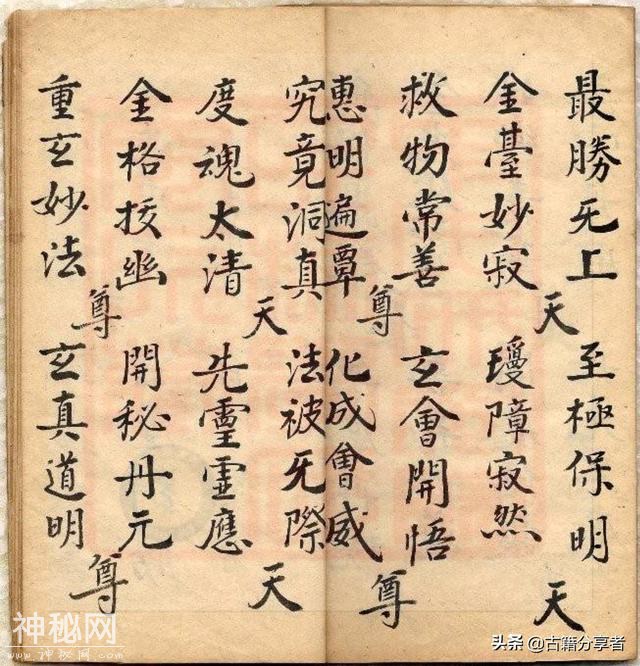 最勝旡上 至極保明
天 天
金臺妙寂 瓊障寂然
救物常善 玄會開悟
尊 尊
惠明遍覃 化成會威
究竟洞真 法被旡際
天 天
度魂太清 先霊霊應
金格挍幽 開秘丹元
尊 尊
重玄妙法 玄真道明
神秘网
www.shenmi网.com
头条 @古籍分享者